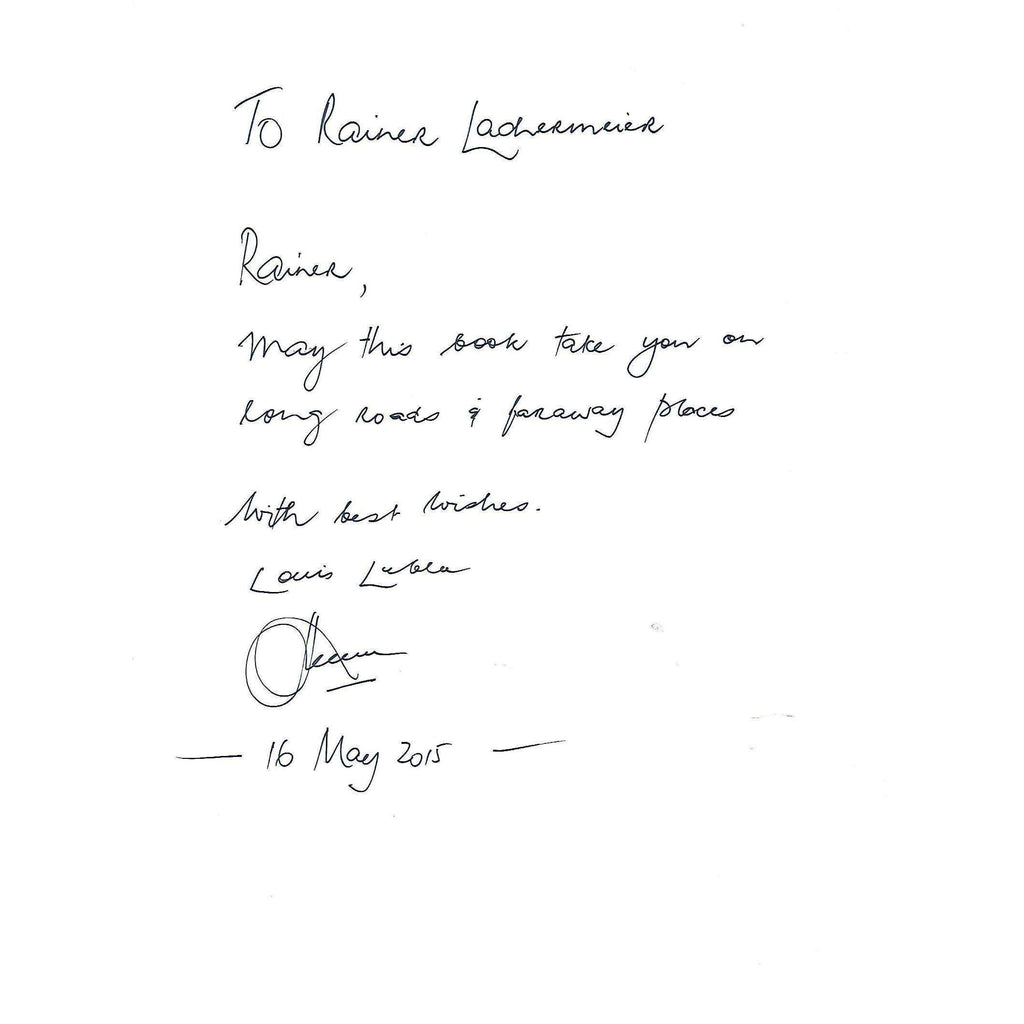 To Rainer Lachermeier
Rainer,
May this book take you on
long roads & faraway places
With best wishes.
Louis
16 May 2015